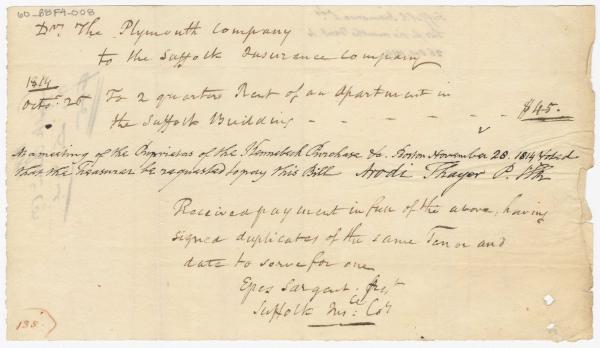 60_B8F4-008
Dr. The Plymouth Company
to the Suffolk Insurance Company
1814
Octor. 26 To 2 quarters Rent of an Apartment in
the Suffolk Building - - - - - - - $45.-
At a meeting of the Proprietors of the Kennebeck Purchase &c. Boston November 28. 1814 Voted
that the Treasurer be requested to pay this Bill Arodi Thayer P. Clk
Received payment in full of the above, having
signed duplicates of the same Tenor and
date to serve for one
Epes Sargent. Prest
Suffolk Inse. Coy
135